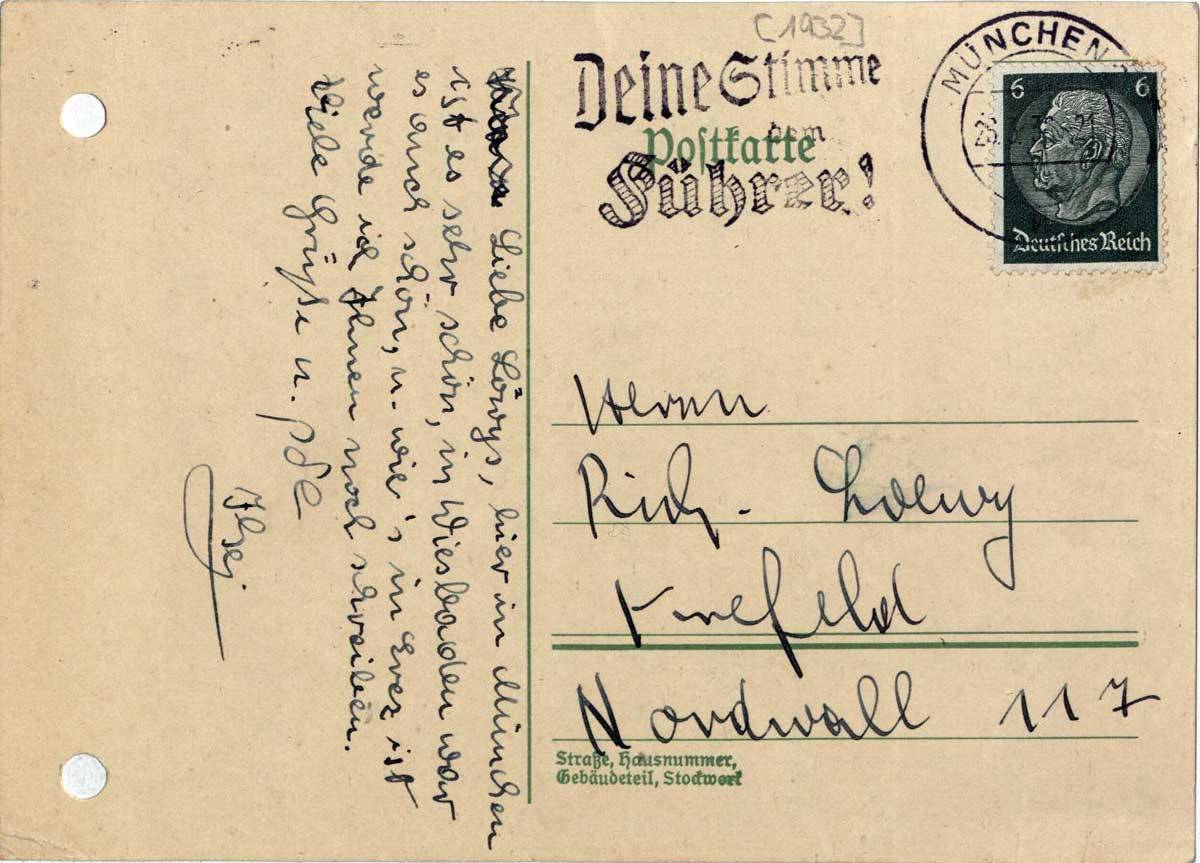 [1932]
Deine Stimme
dem
Führer!
Postkarte
MÜNCHEN
6 6
Deutsches Reich
Liebe Löwys, hier in München
ist es sehr schön, in Wiesbaden war
es auch schön, u. wie's in ist
werde ich Ihnen noch schreiben.
Viele Grüße u.
Herrn
Rich. Loewy
Krefeld
Nordwall 117
Straße, Hausnummer,
Gebäudeteil, Stockwerk